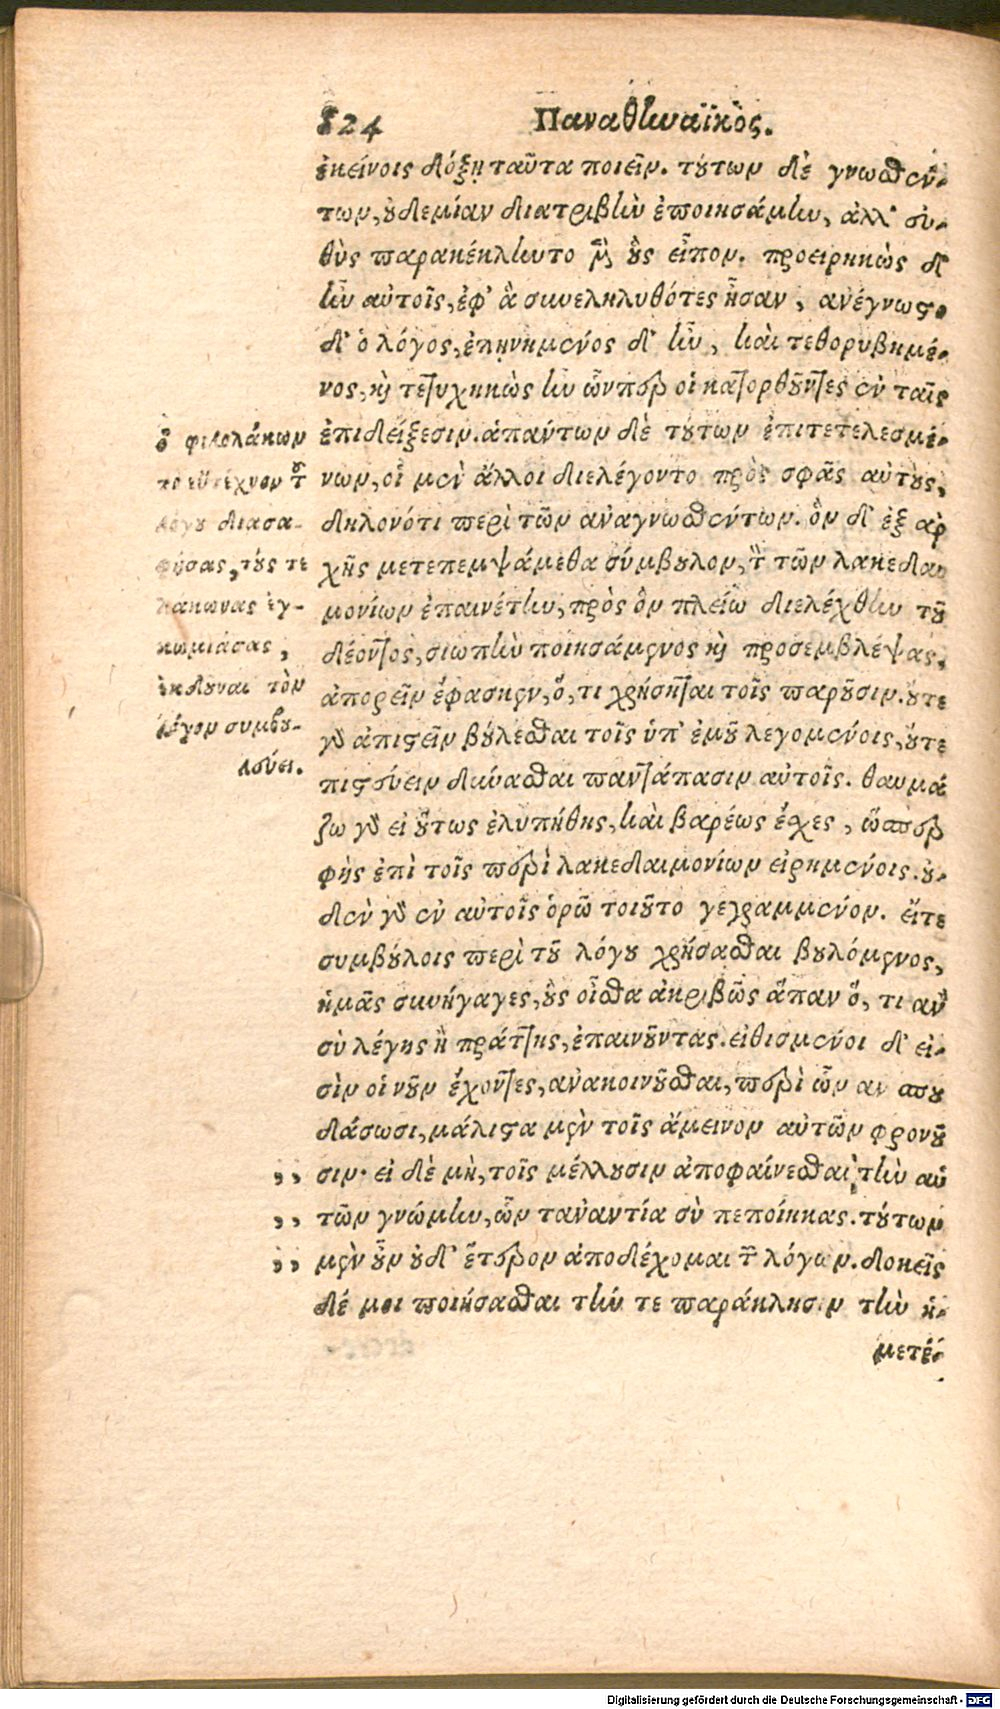 824 Παναθηναϊκός.
ἐκείνοις δόξῃ ταῦτα ποιεῖν. τούτων δὲ γνωσθέν-
των, οὐδεμίαν διατριβὴν ἐποιησάμην, ἀλλ' εὐ-
θὺς παρακέκληντο μὲν οὓς εἶπον. προειρηκὼς δ'
ἦν αὐτοῖς, ἐφ' ἃ συνεληλυθότες ἦσαν, ἀνέγνωστο
δ' ὁ λόγος, ἐπῃνημένος δ' ἦν, καὶ τεθορυβημέ-
νος, καὶ τετυχηκὼς ἦν ὧνπερ οἱ κατορθοῦντες ἐν ταῖς
ἐπιδείξεσιν. ἁπάντων δὲ τούτων ἐπιτετελεσμέ-
νων, οἱ μὲν ἄλλοι διελέγοντο πρὸς σφᾶς αὐτοὺς,
δηλονότι περὶ τῶν ἀναγνωσθέντων. ὃν δ' ἐξ ἀρ
χῆς μετεπεμψάμεθα σύμβουλον, τὸν τῶν λακεδαι
μονίων ἐπαινέτην, πρὸς ὃν πλείω διελέχθην τοῦ
δέοντος, σιωπὴν ποιησάμενος καὶ προσεμβλέψας,
ἀπορεῖν ἔφασκεν, ὅ, τι χρήσηται τοῖς παροῦσιν. οὔτε
γὰρ ἀπιστεῖν βούλεσθαι τοῖς ὑπ' ἐμοῦ λεγομένοις, οὔτε
πιστεύειν δύνασθαι παντάπασιν αὐτοῖς. θαυμά
ζω γὰρ εἰ οὕτως ἐλυπήθης, καὶ βαρέως ἔσχες, ὥσπερ
φῂς ἐπὶ τοῖς περὶ λακεδαιμονίων εἰρημένοις. οὐ-
δὲν γὰρ ἐν αὐτοῖς ὁρῶ τοιοῦτο γεγραμμένον. εἴτε
συμβούλοις περὶ τοῦ λόγου χρήσασθαι βουλόμενος,
ἡμᾶς συνήγαγες, οὓς οἶσθα ἀκριβῶς ἅπαν ὅ, τι ἂν
σὺ λέγῃς ἢ πράττῃς, ἐπαινοῦντας. εἰθισμένοι δ' εἰ-
σὶν οἱ νοῦν ἔχοντες, ἀνακοινοῦσθαι, περὶ ὧν αν σπου
δάσωσι, μάλιστα μὲν τοῖς ἄμεινον αὐτῶν φρονοῦ
,, σιν· εἰ δὲ μὴ, τοῖς μέλλουσιν ἀποφαίνεσθαι τὴν αὑ
,, τῶν γνώμην, ὧν τἀναντία σὺ πεποίηκας. τούτων
,, μὲν οὖν οὐδ' ἕτερον ἀποδέχομαι τῶν λόγων. δοκεῖς
δέ μοι ποιήσασθαι τήν τε παράκλησιν τὴν ἡ-
μετέ-
ὁ φιλολάκων
τὸ εὔτεχνον τοῦ
λόγου διασα-
φήσας, τούς τε
λάκωνας ἐγ-
κωμιάσας,
ἐκδοῦναι τὸν
λόγον συμβου-
λεύει.
Digitalisierung gefördert durch die Deutsche Forschungsgemeinschaft - DFG